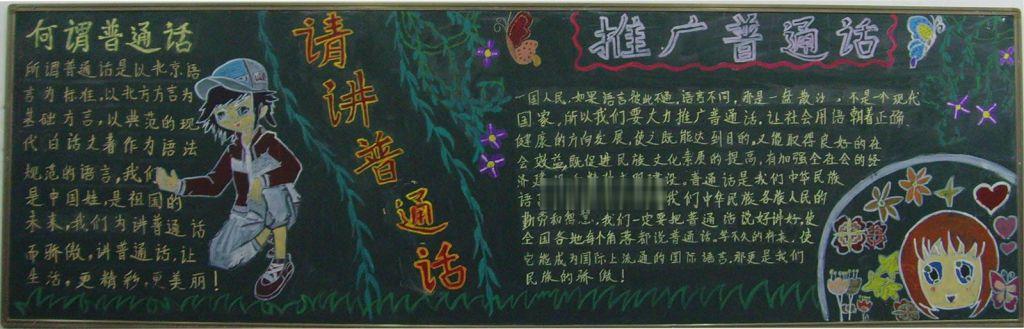 何谓普通话
所谓普通话是以北京语
言为标准,以北方方言为
基础方言,以典范的现
代白话文著作为语法
规范的语言,我们
是中国娃,是祖国的
未来,我们为讲普通话
而骄傲,讲普通话,让
生活,更精彩,更美丽!
请讲普通话
推广普通话
一国人民,如果语言彼此不通,语言不同,那是一盘散沙,不是个现代
国家,所以我们要大力推广普通话,让社会用语朝着正确
健康的方向发展,使之既能达到目的,又能取得良好的社
会效益,既促进民族文化素质的提高,有加强全社会的经
济建 建设。普通话是我们中华民族
语言 我们中华民族各族人民的
勤劳和智慧,我们一定要把普通话说好讲好,使
全国各地每个角落都说普通话,等不久的将来,使
它能成为国际上流通的国际语言,那更是我们
民族的骄傲!